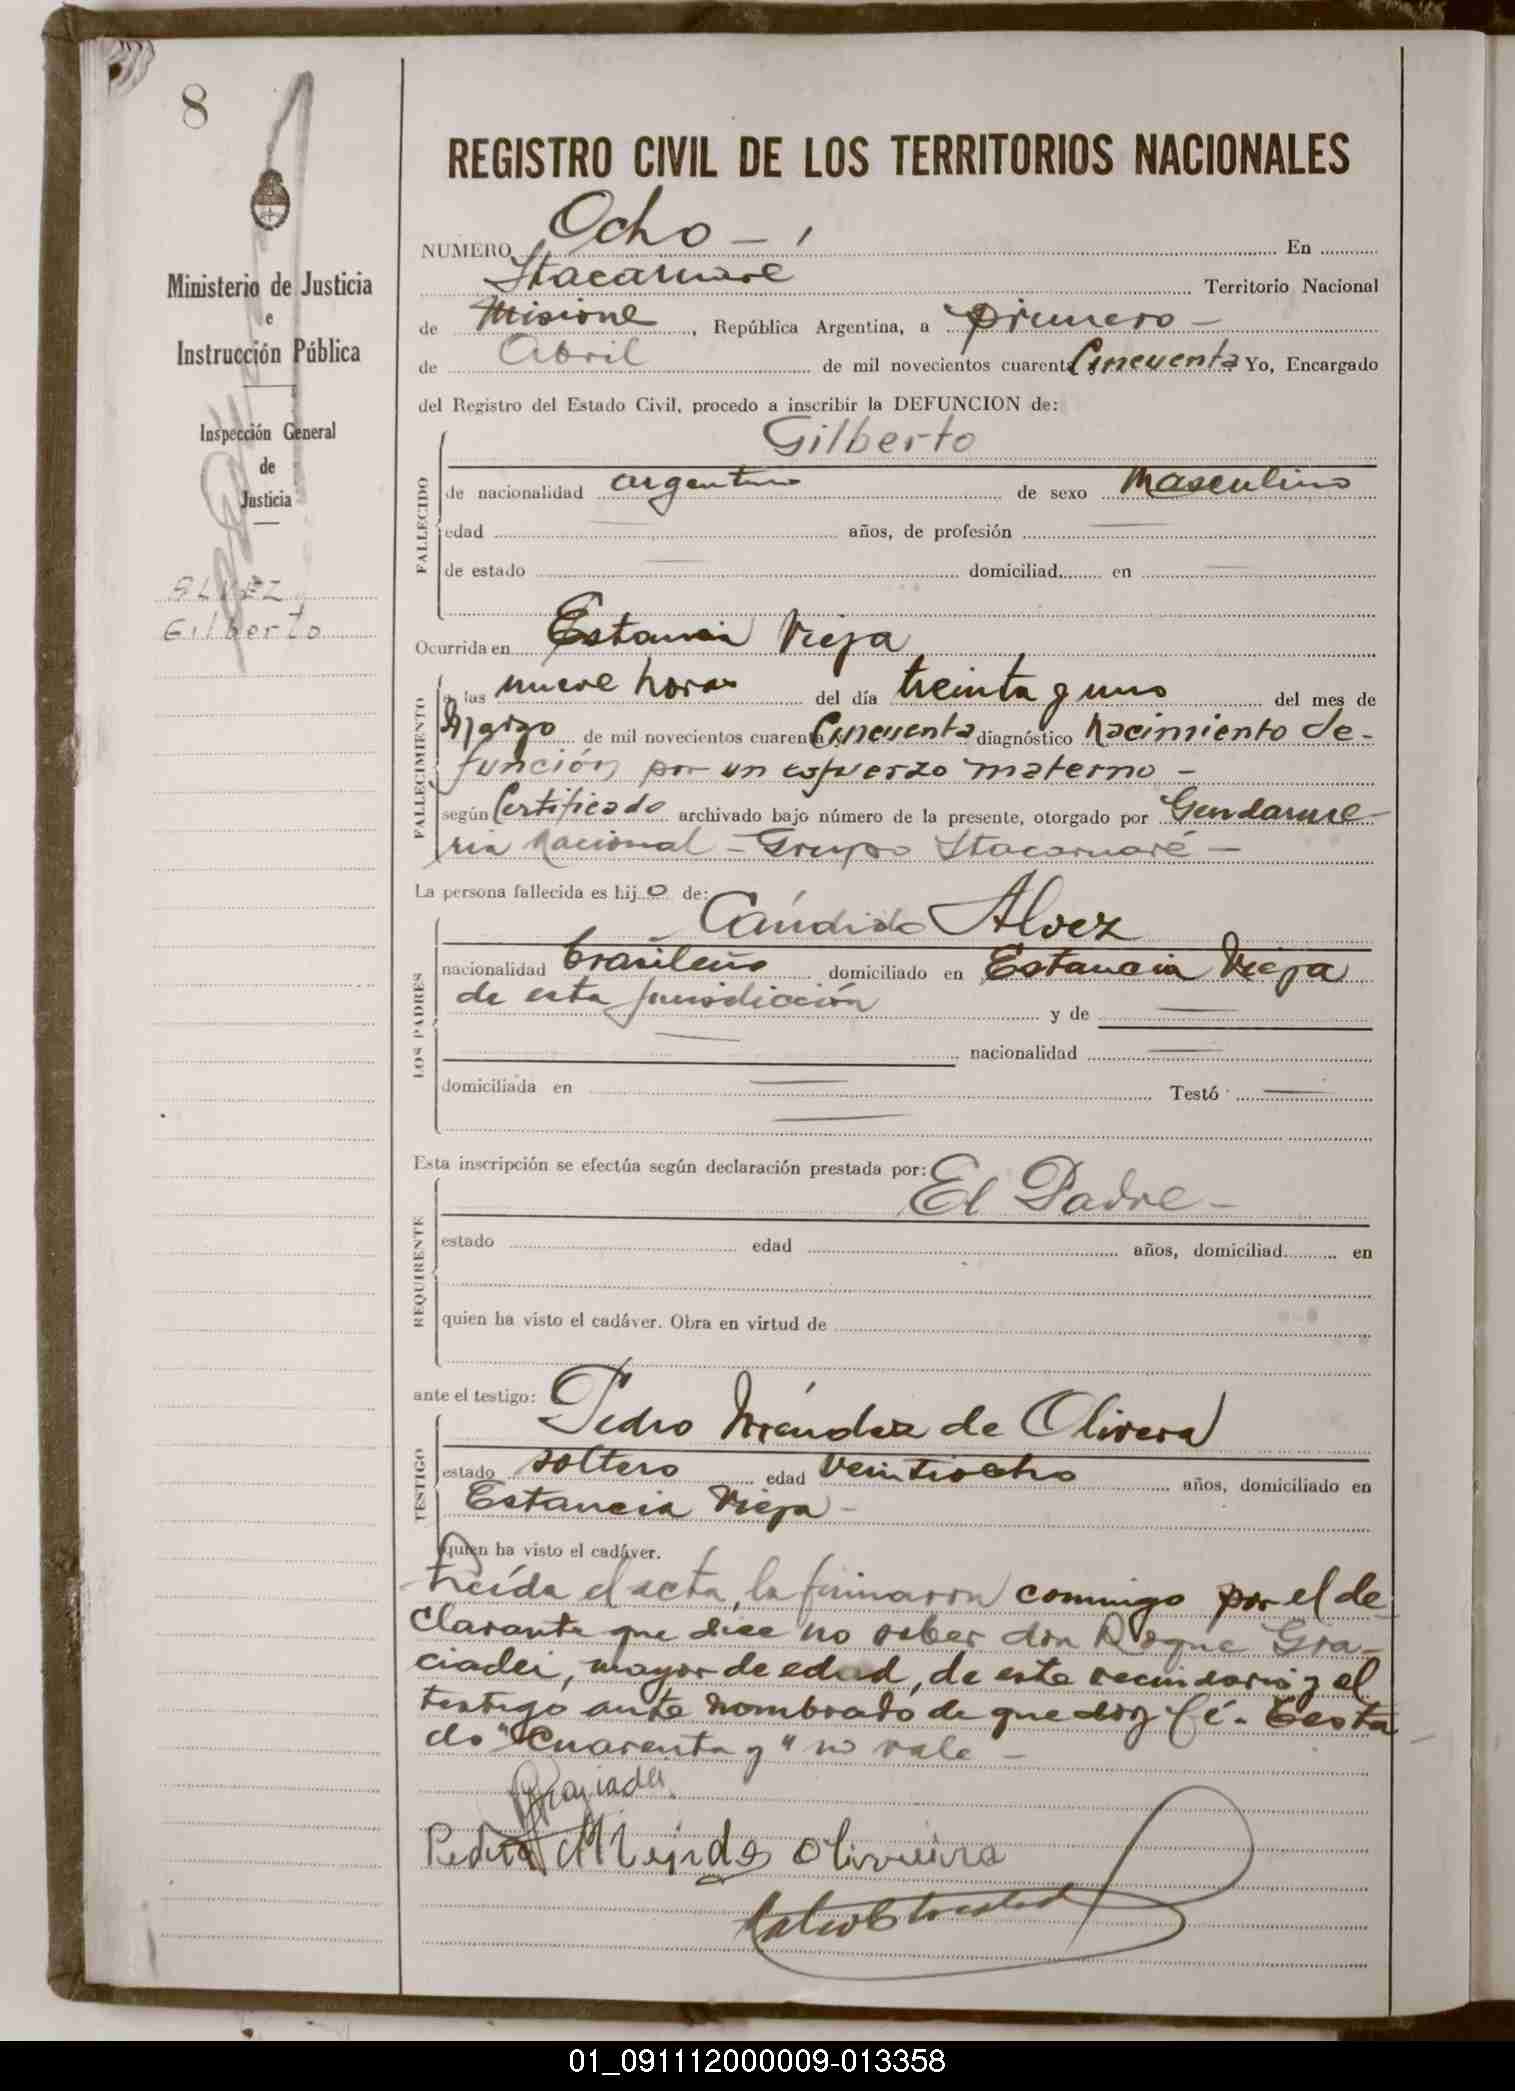 8
Ministerio de Justicia
e
Instrucción Pública
Inspección General
de
Justicia
ALVEZ,
Gilberto
REGISTRO CIVIL DE LOS TERRITORIOS NACIONALES
NUMERO Ocho - En
Itacaruaré Territorio Nacional
de Misione, República Argentina, a primero -
de Abril de mil novecientos cuarenta Cincuenta Yo, Encargado
del Registro del Estado Civil, procedo a inscribir la DEFUNCION de:
Gilberto
FALLECIDO
de nacionalidad argentino de sexo Masculino
edad años, de profesión
de estado domiciliad en
Ocurrida en Estancia Vieja
FALLECIMIENTO
a las nueve horas del día treinta y uno del mes de
Marzo de mil novecientos cuarenta Cincuenta diagnóstico Nacimiento de-
función por un esfuerzo materno -
según Certificado archivado bajo número de la presente, otorgado por Gendarme-
ria Nacional - Grupo Itacaruaré -
La persona fallecida es hijo de:
Cándido Alvez
LOS PADRES
nacionalidad brasileño domiciliado en Estancia Vieja
de esta jurisdicción y de
nacionalidad
domiciliada en Testó
Esta inscripción se efectúa según declaración prestada por:
El Padre -
REQUIRENTE
estado edad años, domiciliad en
quien ha visto el cadáver. Obra en virtud de
ante el testigo:
Pedro Méndez de Olivera
TESTIGO
estado soltero edad veintiocho años, domiciliado en
Estancia Vieja -
quien ha visto el cadáver.
Leída el acta, la firmaron comigo por el de-
clarante que dice no saber don Roque Gra-
ciadei, mayor de edad, de este vecindario y el
testigo ante nombrado de que doy fé. Testa
do "Cuarenta y" no vale -
Graziadei
Pedro Mendes Oliveira
01_091112000009-013358